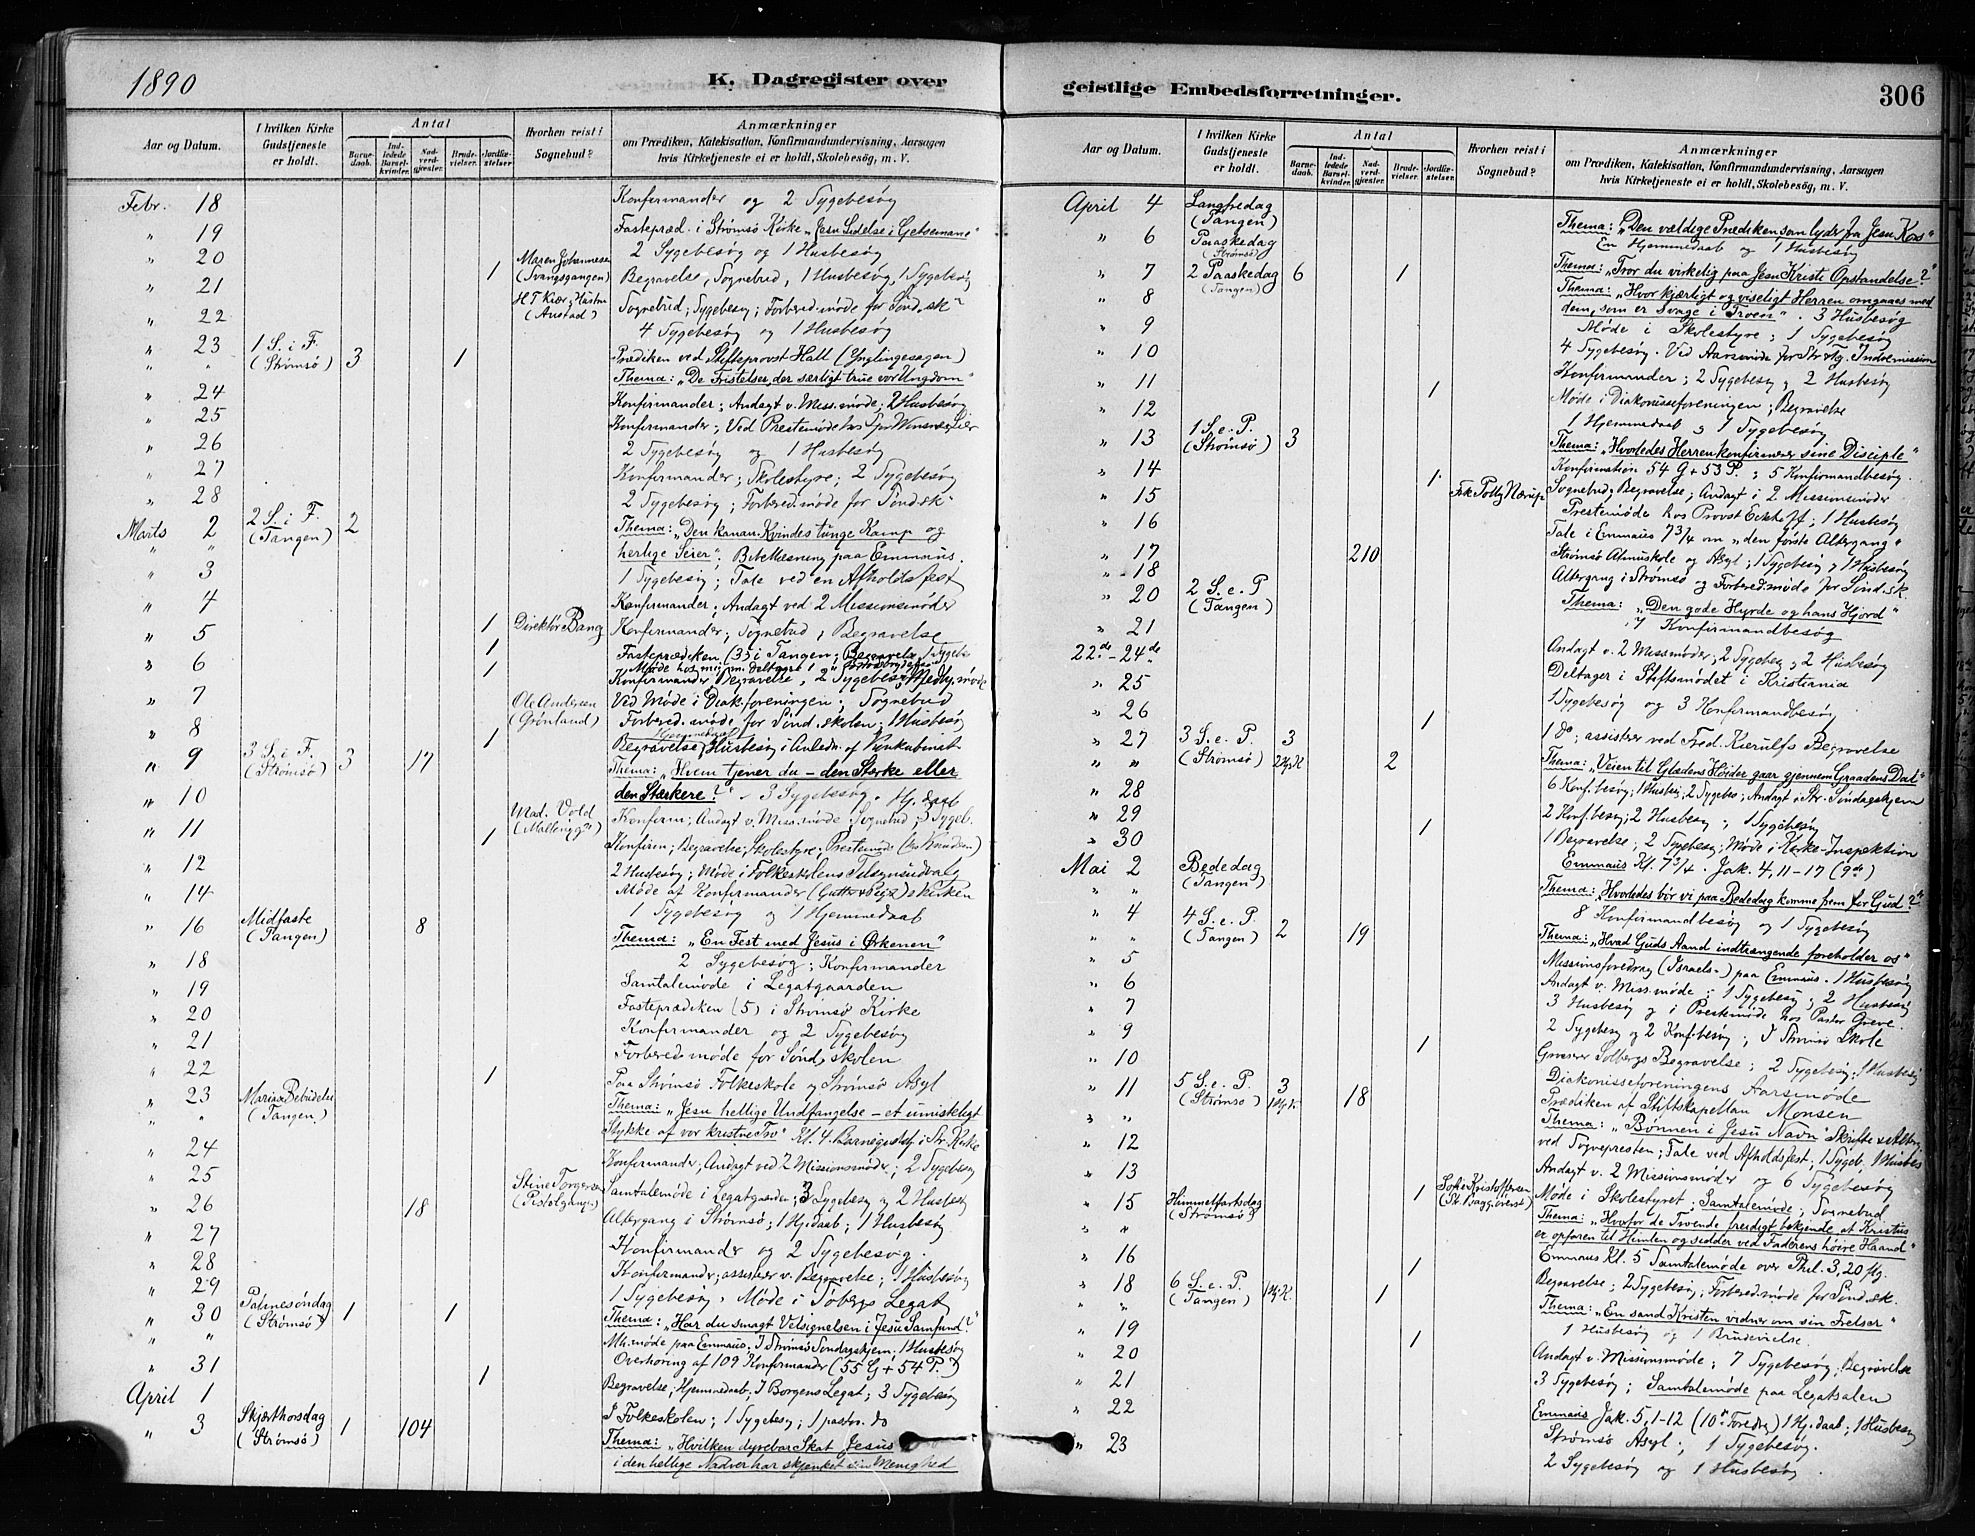 1890
K. Dagregister over
Aar og Datum.
I hvilken Kirke
Gudstjeneste
er holdt.
Antal
Barnedaab.
Indledede Barselkvinder.
Nadverdgjester.
Brudevielser.
Jordfæstelser
Hvorhen reist i
Sognebud?
Anmærkninger
om Prædiken, Katekisation, Konfirmandundervisning, Aarsagen
hvis Kirketjeneste ei er holdt, Skolebesøg, m. V.
Febr. 18 Konfirmander og 2 Sygebesøg
" 19 Fastepræd. i Strømsø Kirke "Jesu Lidelse i Getsemane"
" 20 2 Sygebesøg og 1 Husbesøg
" 21 1 Maren Johannesen (Tvangsgangen) Begravelse, Sognebud, 1 Husbesøg, 1 Sygebesøg
" 22 (Austad) Sognebud; Sygebesøg; Forbered.møde for Sønd.sk.
4 Sygebesøg og 1 Husbesøg
" 23 1 S. i F. (Strømsø) 3 1 Prædiken ved Stiftsprovst Hall (Ynglingesagen)
" " Thema: "De Fristelser, der særligt true vor Ungdom"
" 24 Konfirmander; Andagt v. Miss.møde; 2 Husbesøg
" 25 Konfirmander; Ved Prestemøde hos
" 26 2 Sygebesøg og 1 Husbesøg
" 27 Konfirmander; Skolestyre; 2 Sygebesøg
" 28 2 Sygebesøg; Forbered.møde for Sønd.sk.
Marts 2 2 S. i F. (Tangen) 2 Thema: "Den kanan. Kvindes tunge Kamp og
" " herlige Seier". Bibellæsning paa Emmaus.
" 3 1 Sygebesøg; Tale ved en Afholdsfest
" 4 Konfirmander; Andagt ved 2 Missionsmøder
" 5 1 Direktør Bang Konfirmander; Sognebud; Begravelse
" 6 1 Fasteprædiken (3) i Tangen; Begravelse; Sygebes.
1 Konfirmander Begravelse, 2 Sygebesøg
" 7 Ole Andersen (Grønland) Ved Møde i Diak.foreningen; Sognebud
" 8 Forbered.møde for Sønd.skolen; 1 Husbesøg
1 Begravelse, Husbesøg i Anledn. af
" 9 3 S. i F. (Strømsø) 3 17 Thema: "Hvem tjener du – den Sterke eller
" 10 den Stærkere?" 3 Sygebesøg, Hj.daab
" 11 Mad. Vold Konfirm; Andagt v. Miss.møde; Sognebud; 3 Sygeb.
1 Konfirm; Begravelse; Skolestyre; Prestemøde
" 12 2 Husbesøg; Møde i Folkeskolens Tilsynsudvalg
" 14 Møde af Konfirmander i Kirken
1 Sygebesøg og 1 Hjemmedaab
" 16 Midfaste (Tangen) 8 Thema: "En Fest med Jesus i Ørkenen"
" 18 2 Sygebesøg; Konfirmander
" 19 Samtalemøde i Legatgaarden
" 20 Fasteprædiken (5) i Strømsø Kirke
" 21 Konfirmander og 2 Sygebesøg
" 22 Forbered.møde for Sønd.skolen
1 Paa Strømsø Folkeskole og Strømsø Asyl
" 23 Mariæ Bebudelse (Tangen) Thema: "Jesu hellige Undfangelse – et umisteligt
" " Stykke af vor kristne Tro" Kl. 4. Barnegudstj. i Str. Kirke
" 24 Konfirmander; Andagt ved 2 Missionsmøder; 2 Sygebesøg
" 25 Stine Torgersen Samtalemøde i Legatgaarden; 3 Sygebesøg og 2 Husbesøg
" 26 18 Altergang i Strømsø; 1 Hj.daab; 1 Husbesøg
" 27 Konfirmander og 2 Sygebesøg.
" 28 Konfirmander; assisterer v. Begravelse; 1 Husbesøg
" 29 1 Sygebesøg. Møde i Legat
" 30 Palmesøndag (Strømsø) 1 1 Thema: "Har du smagt Velsignelsen i Jesu Samfund?"
" " paa Emmaus. I Strømsø Søndagshjem. 1 Husbesøg
" 31 Overhøring af 109 Konfirmander (55 G + 54 P.)
April 1 1 Begravelse, Hjemmedaab, I Borgens Legat; 3 Sygebesøg
I Folkeskolen; 1 Sygebesøg; 1 do
" 3 Skjærthorsdag (Strømsø) 1 104 Thema: "Hvilken dyrebar Skat Jesus
i den hellige Nadver har skjænket sin Menighed
geistlige Embedsforretninger.
306
Aar og Datum.
I hvilken Kirke
Gudstjeneste
er holdt.
Antal
Barnedaab.
Indledede Barselkvinder.
Nadverdgjester.
Brudevielser.
Jordfæstelser
Hvorhen reist i
Sognebud?
Anmærkninger
om Prædiken, Katekisation, Konfirmandundervisning, Aarsagen
hvis Kirketjeneste ei er holdt, Skolebesøg, m. V.
April 4 Langfredag (Tangen) Thema: "Den vældige Prædiken som lyder fra Jesu Kors"
En Hjemmedaab og 1 Husbesøg
" 6 Paaskedag (Strømsø) Thema: "Tror du virkelig paa Jesu Kristi Opstandelse?"
" 7 2 Paaskedag (Tangen) 6 1 Thema: "Hvor kjærligt og viseligt Herren omgaaes med
dem, som er svage i Troen". 3 Husbesøg
" 8 Møde i Skolestyre; 1 Sygebesøg
" 9 4 Sygebesøg. Ved Aarsmøde for Indremission
" 10 Konfirmander; 2 Sygebesøg; 2 Husbesøg
" 11 1 Møde i Diakonisseforeningen; Begravelse
" 12 1 Hjemmedaab og 1 Sygebesøg
" 13 1 S. e. P. (Strømsø) 3 Thema: "Hvorledes Herren konfirmerer sine Disciple"
Konfirmation 54 G + 53 P; 5 Konfirmandbesøg.
" 14 1 Frk Polly Nærup Sognebud; Begravelse; Andagt i 2 Missionsmøder
" 15 Prestemøde hos Provst Eckhoff; 1 Husbesøg
" 16 Tale i Emmaus 7 3/4 om "den første Altergang"
Strømsø Almuskole og Asyl; 1 Sygebesøg; 1 Husbesøg
" 17 210 Altergang i Strømsø og Forberedmøde for Sønd.sk
" 18
" 20 2 S. e. P (Tangen) Thema: "Den gode Hyrde og hans Hjord"
" 21 7 Konfirmandbesøg
Andagt v. 2 Missmøder; 2 Sygebesøg; 2 Husbesøg
22de – 24de Deltager i Stiftsmødet i Kristiania
" 25 1 Sygebesøg og 3 Konfirmandbesøg
" 26 1 1 do; assisterer ved Fred. Kierulfs Begravelse
" 27 3 S. e. P. (Strømsø) 3 2 Hj.K. 2 Thema: "Veien til Glædens Høider gaar gjennem Graadens Dal"
" " 6 Konf.besøg; 1 Husbesøg; 2 Sygebes; Andagt i Str. Søndagshjem
" 28 2 Konf.besøg; 2 Husbesøg; 1 Sygebesøg
" 29 1 1 Begravelse; 2 Sygebesøg; Møde i Kirke-Inspektion
" 30 Emmaus Kl. 7 3/4. Jak. 4, 11–17 (9de)
Mai 2 Bededag (Tangen) Thema: "Hvorledes bør vi paa Bededag komme frem for Gud?"
" " 8 Konfirmandbesøg og 1 Sygebesøg
" 4 4 S. e. P. (Tangen) 2 19 Thema: "Hvad Guds Aand indtrængende foreholder os"
" " Missionsforedrag (Israels-) paa Emmaus. 1 Husbesøg
" 5 Andagt v. Miss.møde; 1 Sygebesøg; 2 Husbesøg
" 6 3 Husbesøg og i Prestemøde hos Pastor Greve.
" 7 2 Sygebesøg og 2 Konf.besøg; I Strømsø Skole
" 9 1 Graverer Solbergs Begravelse; 2 Sygebesøg; 1 Husbesøg
" 10 Diakonisseforeningens Aarsmøde
" 11 5 S. e. P. (Strømsø) 3 1 Hj.K. 18 Prædiken af Stiftskapellan Monsen
" " Thema: "Bønnen i Jesu Navn" Skrifte & Alterg.
ved Sognepresten; Tale ved Afholdsfest; 1 Sygeb, 1 Husbes
" 12 Andagt v. 2 Missionsmøder og 6 Sygebesøg
" 13 1 Sofie Kristoffersen Møde i Skolestyret. Samtalemøde; Sognebud
" 15 Himmelfartsdag (Strømsø) Thema: "Hvorfor de Troende freidigt bekjende at Kristus
" " er opfaren til Himlen og sidder ved Faderens høire Haand"
" 16 1 Emmaus Kl. 5 Samtalemøde over Phil. 3, 20 flg.
Begravelse; 2 Sygebesøg; Forbered.møde for Sønd.sk.
" 18 6 S. e. P. (Tangen) 1 Hj.K. 1 Thema: "En sand Kristen vidner om sin Frelser"
" " 1 Husbesøg og 1 Brudevielse
" 19 1 Andagt v. Missionsmøde; 7 Sygebesøg; Begravelse
" 20 3 Sygebesøg; Samtalemøde paa Legatsalen
" 21 Emmaus Jak. 5, 1–12 (10de Foredrag) 1 Hj.daab; 1 Husbesøg
" 22 Strømsø Asyl; 1 Sygebesøg.
" 23 2 Sygebesøg og 1 Husbesøg.